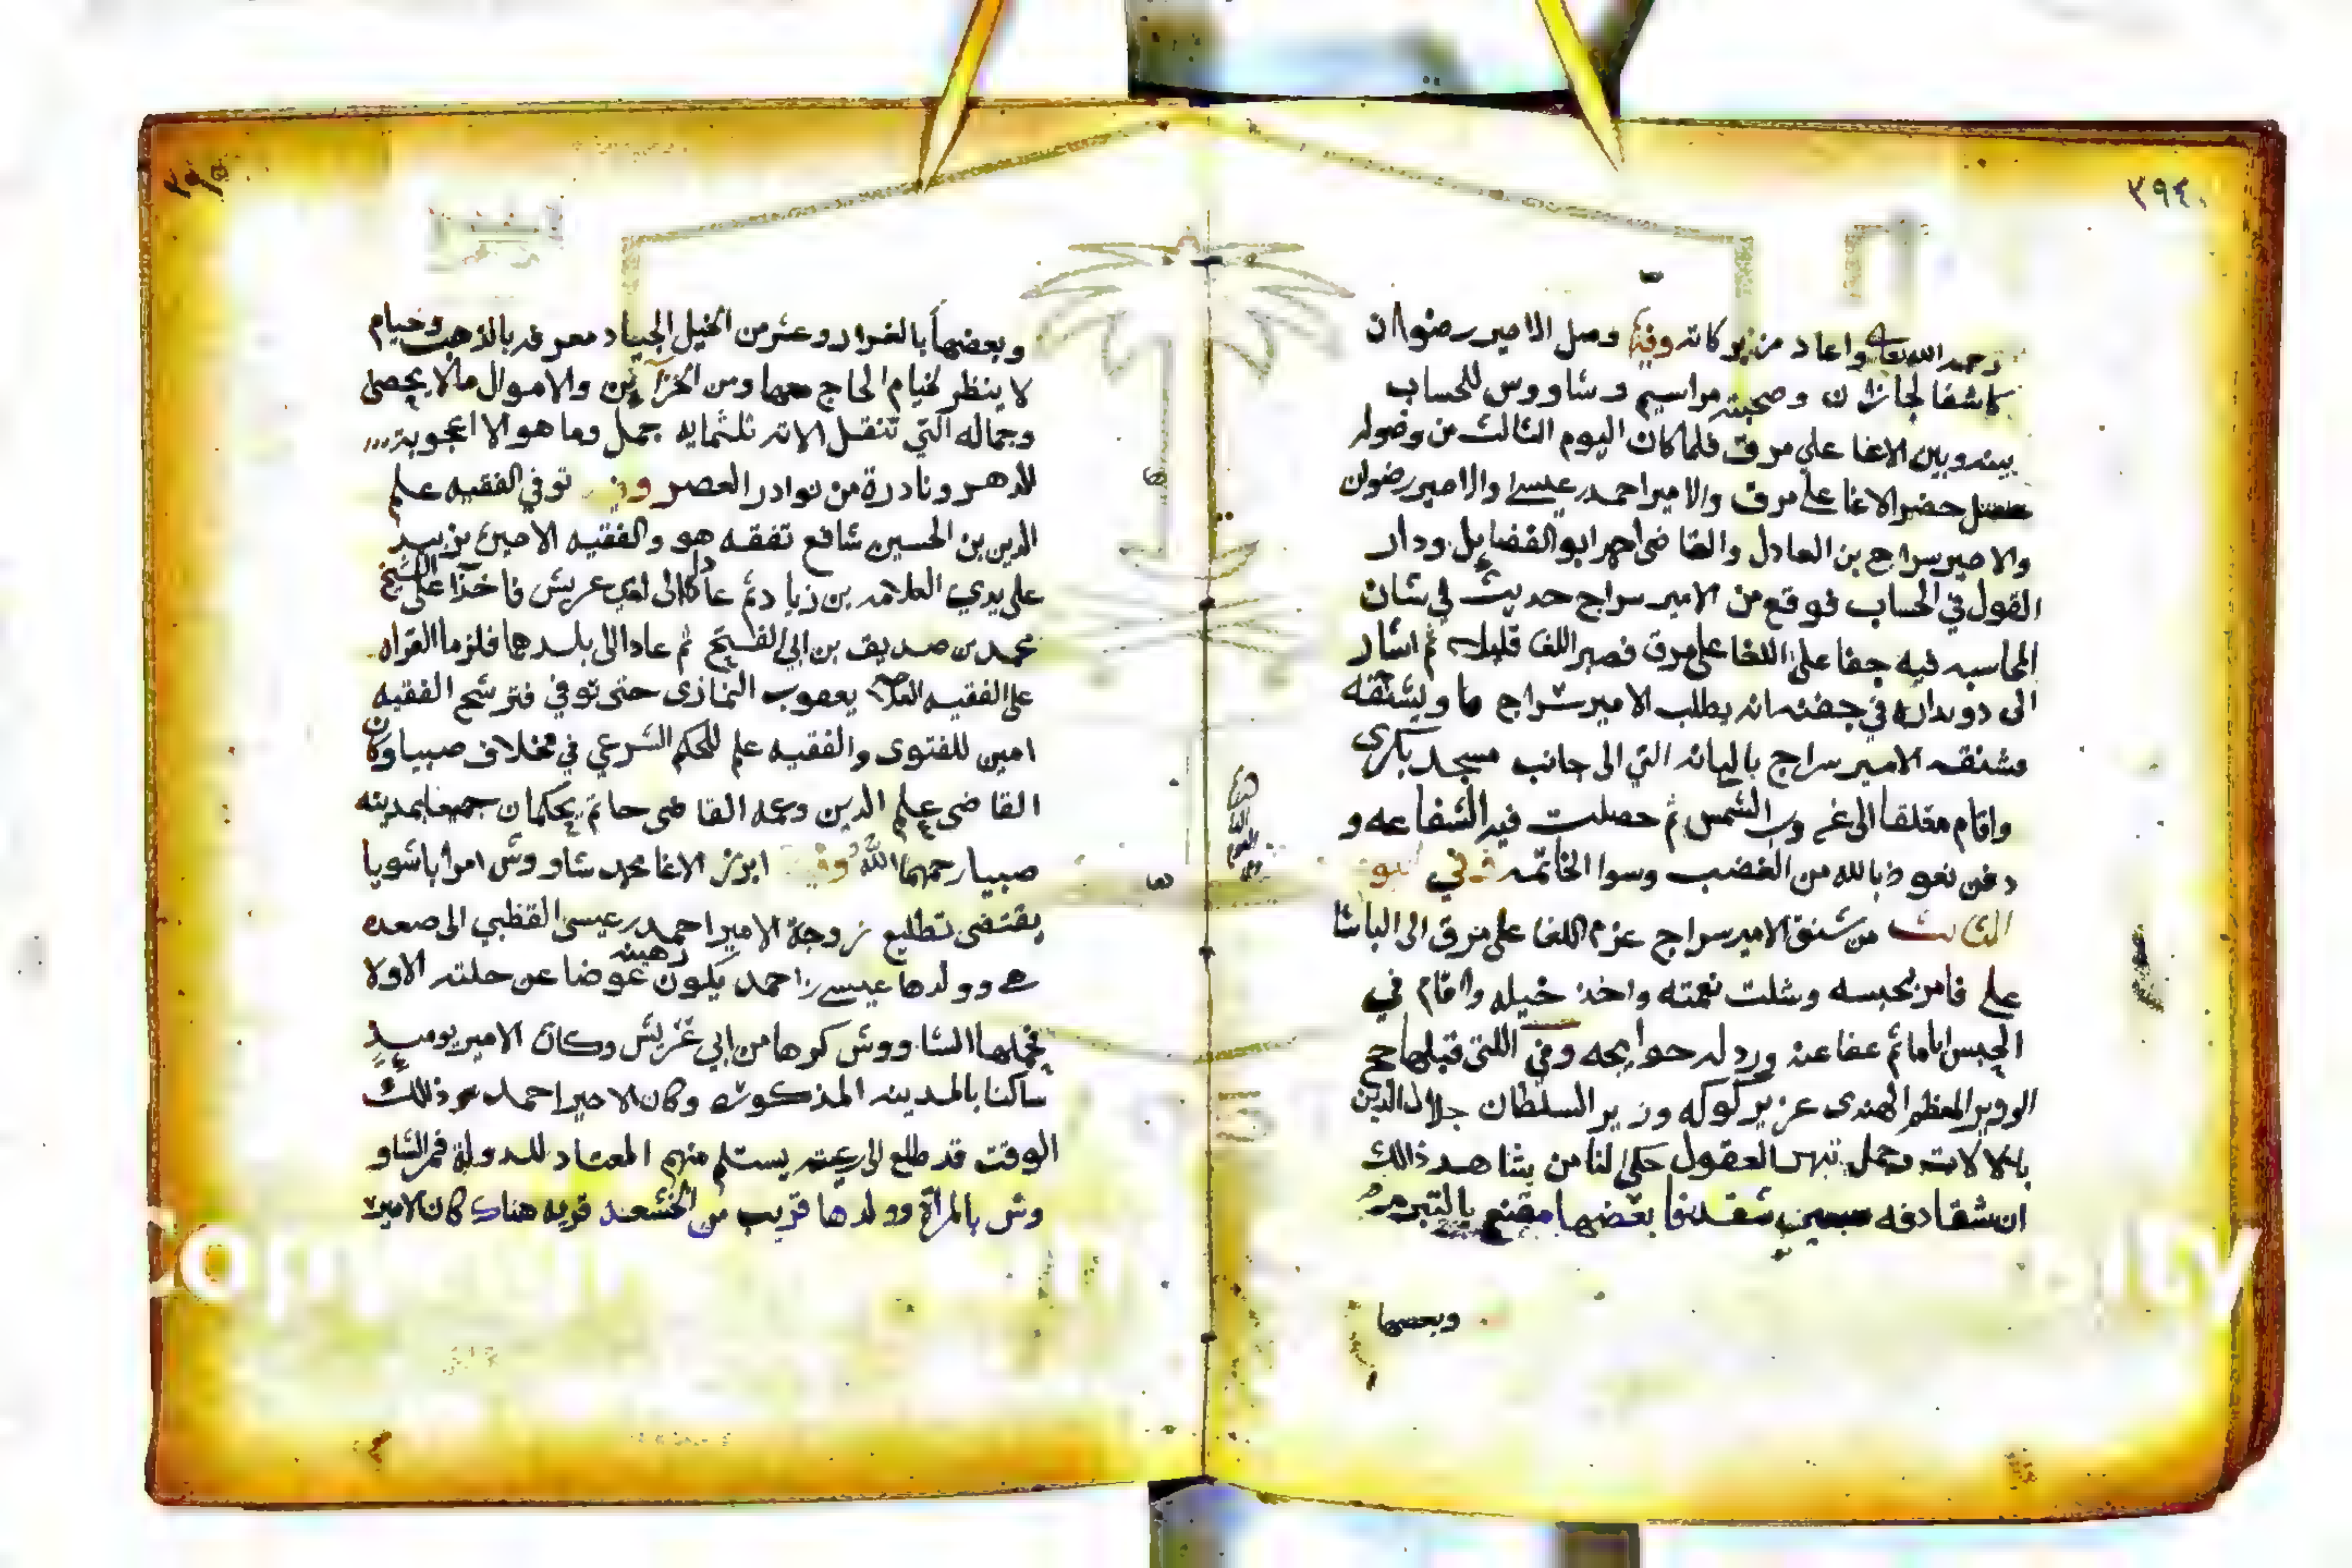 ٣٩٤
رحمه الله تعالى واعاد من بركاته وفيها وصل الامير رضوان
كاشفا لجازان وصحبته مراسيم وشاووس للحساب
بينه وبين الاغا علي مرق فلما كان اليوم الثالث من وصوله
حضر الاغا علي مرق والامير احمد بن عيسى والامير رضوان
والامير سراج بن العادل والقاضي ابو الفضايل ودار
القول في الحساب فوقع من الامير سراج حديث في شان
المحاسبه فيه جفا على اللغا علي مرق فصبر اللغا قليلا ثم اشار
الى دويداره في انه يطلب الامير سراج ويشنقه
فشنقه الامير سراج التي الى جانب مسجد بكري
واقام معلقا الى غروب الشمس ثم حصلت فيه الشفاعه و
دفن نعوذ بالله من الغضب وسوا الخاتمه وفي اليوم
الثالث من شنق الامير سراج عزم اللغا علي مرق الى الباشا
علي فامر بحبسه وشلت نعمته واخذ خيله واقام في
الحبس اياما ثم عفا عنه ورد له حوايجه وفي اللتي قبلها حج
الوزير المعظم الهندي عزيز كوكه وزير السلطان جلال الدين
العقول حكى لنا من شاهد ذالك
ان شقادفه شقدفا بعضها مقنع بالتبر
وبعضها
٣٩٥
وبعضها بالفرار وعشر من الخيل الجياد بالذهب وخيام
لا ينظر لخيام الحاج معها ومن الخزآئن والاموال مالا يحصى
وجماله التي تنقل الاته ثلثمايه جمل وما هو الا اعجوبة
للدهر ونادرة من نوادر العصر وفيها توفي الفقيه علم
الدين بن الحسين شافع تفقه هو والفقيه الامين بن
على يدي العلامه بن زياد ثم عادا الى ابي عريش فاخذا على الشيخ
محمد بن صديق بن ابي الفتح ثم عادا الى بلدهما فلزما القراه
على الفقيه العلامه يعقوب النمازى حتى توفي فترشح الفقيه
امين للفتوى والفقيه علم للحكم الشرعي في مخلاف صبيا وكان
القاضي علم الدين وعمه القاضي حاتم يحكمان جميعا بمدينه
صبيا رحمهما الله وفيها ابرز الاغا محمد شاووش امرا باشويا
يقتضي تطليع زوجة الامير احمد بن عيسى القطبي الى صعده
هي وولدها عيسى بن احمد يكون رهينه عوضا عن حلته الاولا
فحملها الشاووش كرها من ابي عريش وكان الامير يوميذ
ساكنا بالمدينه المذكوره وكان الامير احمد في ذالك
الوقت قد طلع الى رعيته يستلم منهم المعتاد للدولة فمر الشاو
وش بالمرآة وولدها قريب من قريه هناك كان الامير